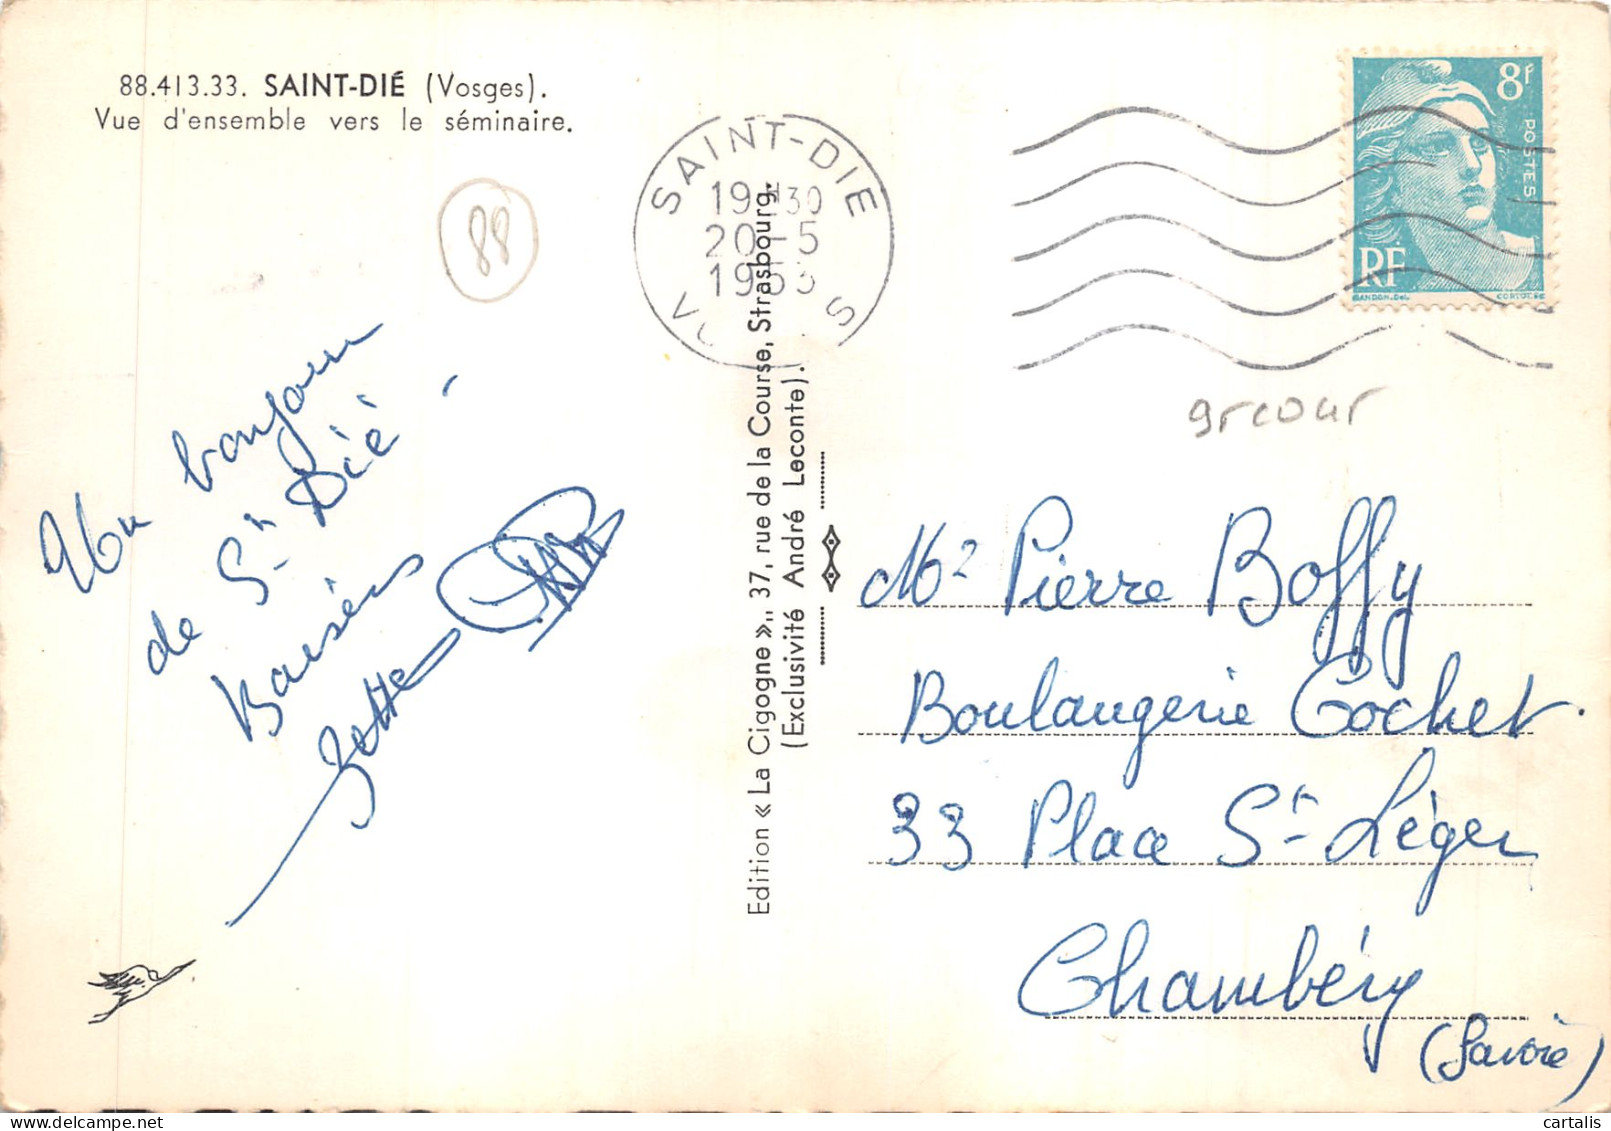 88.413.33. SAINT-DIÉ (Vosges).
Vue d'ensemble vers le séminaire.
88
SAINT-DIE
19H30
20-5
1953
VOSGES
8f
POSTES
RF
GANDON. Del.
CORTOT. SC
grcour
Un bonjour
de St Dié.
Baisers
Edition « La Cigogne »., 37, rue de la Course, Strasbourg.
(Exclusivité André Leconte).
Mr Pierre Boffy
Boulangerie Cochet.
33 Place St Léger
Chambéry
(Savoie)
cartalis